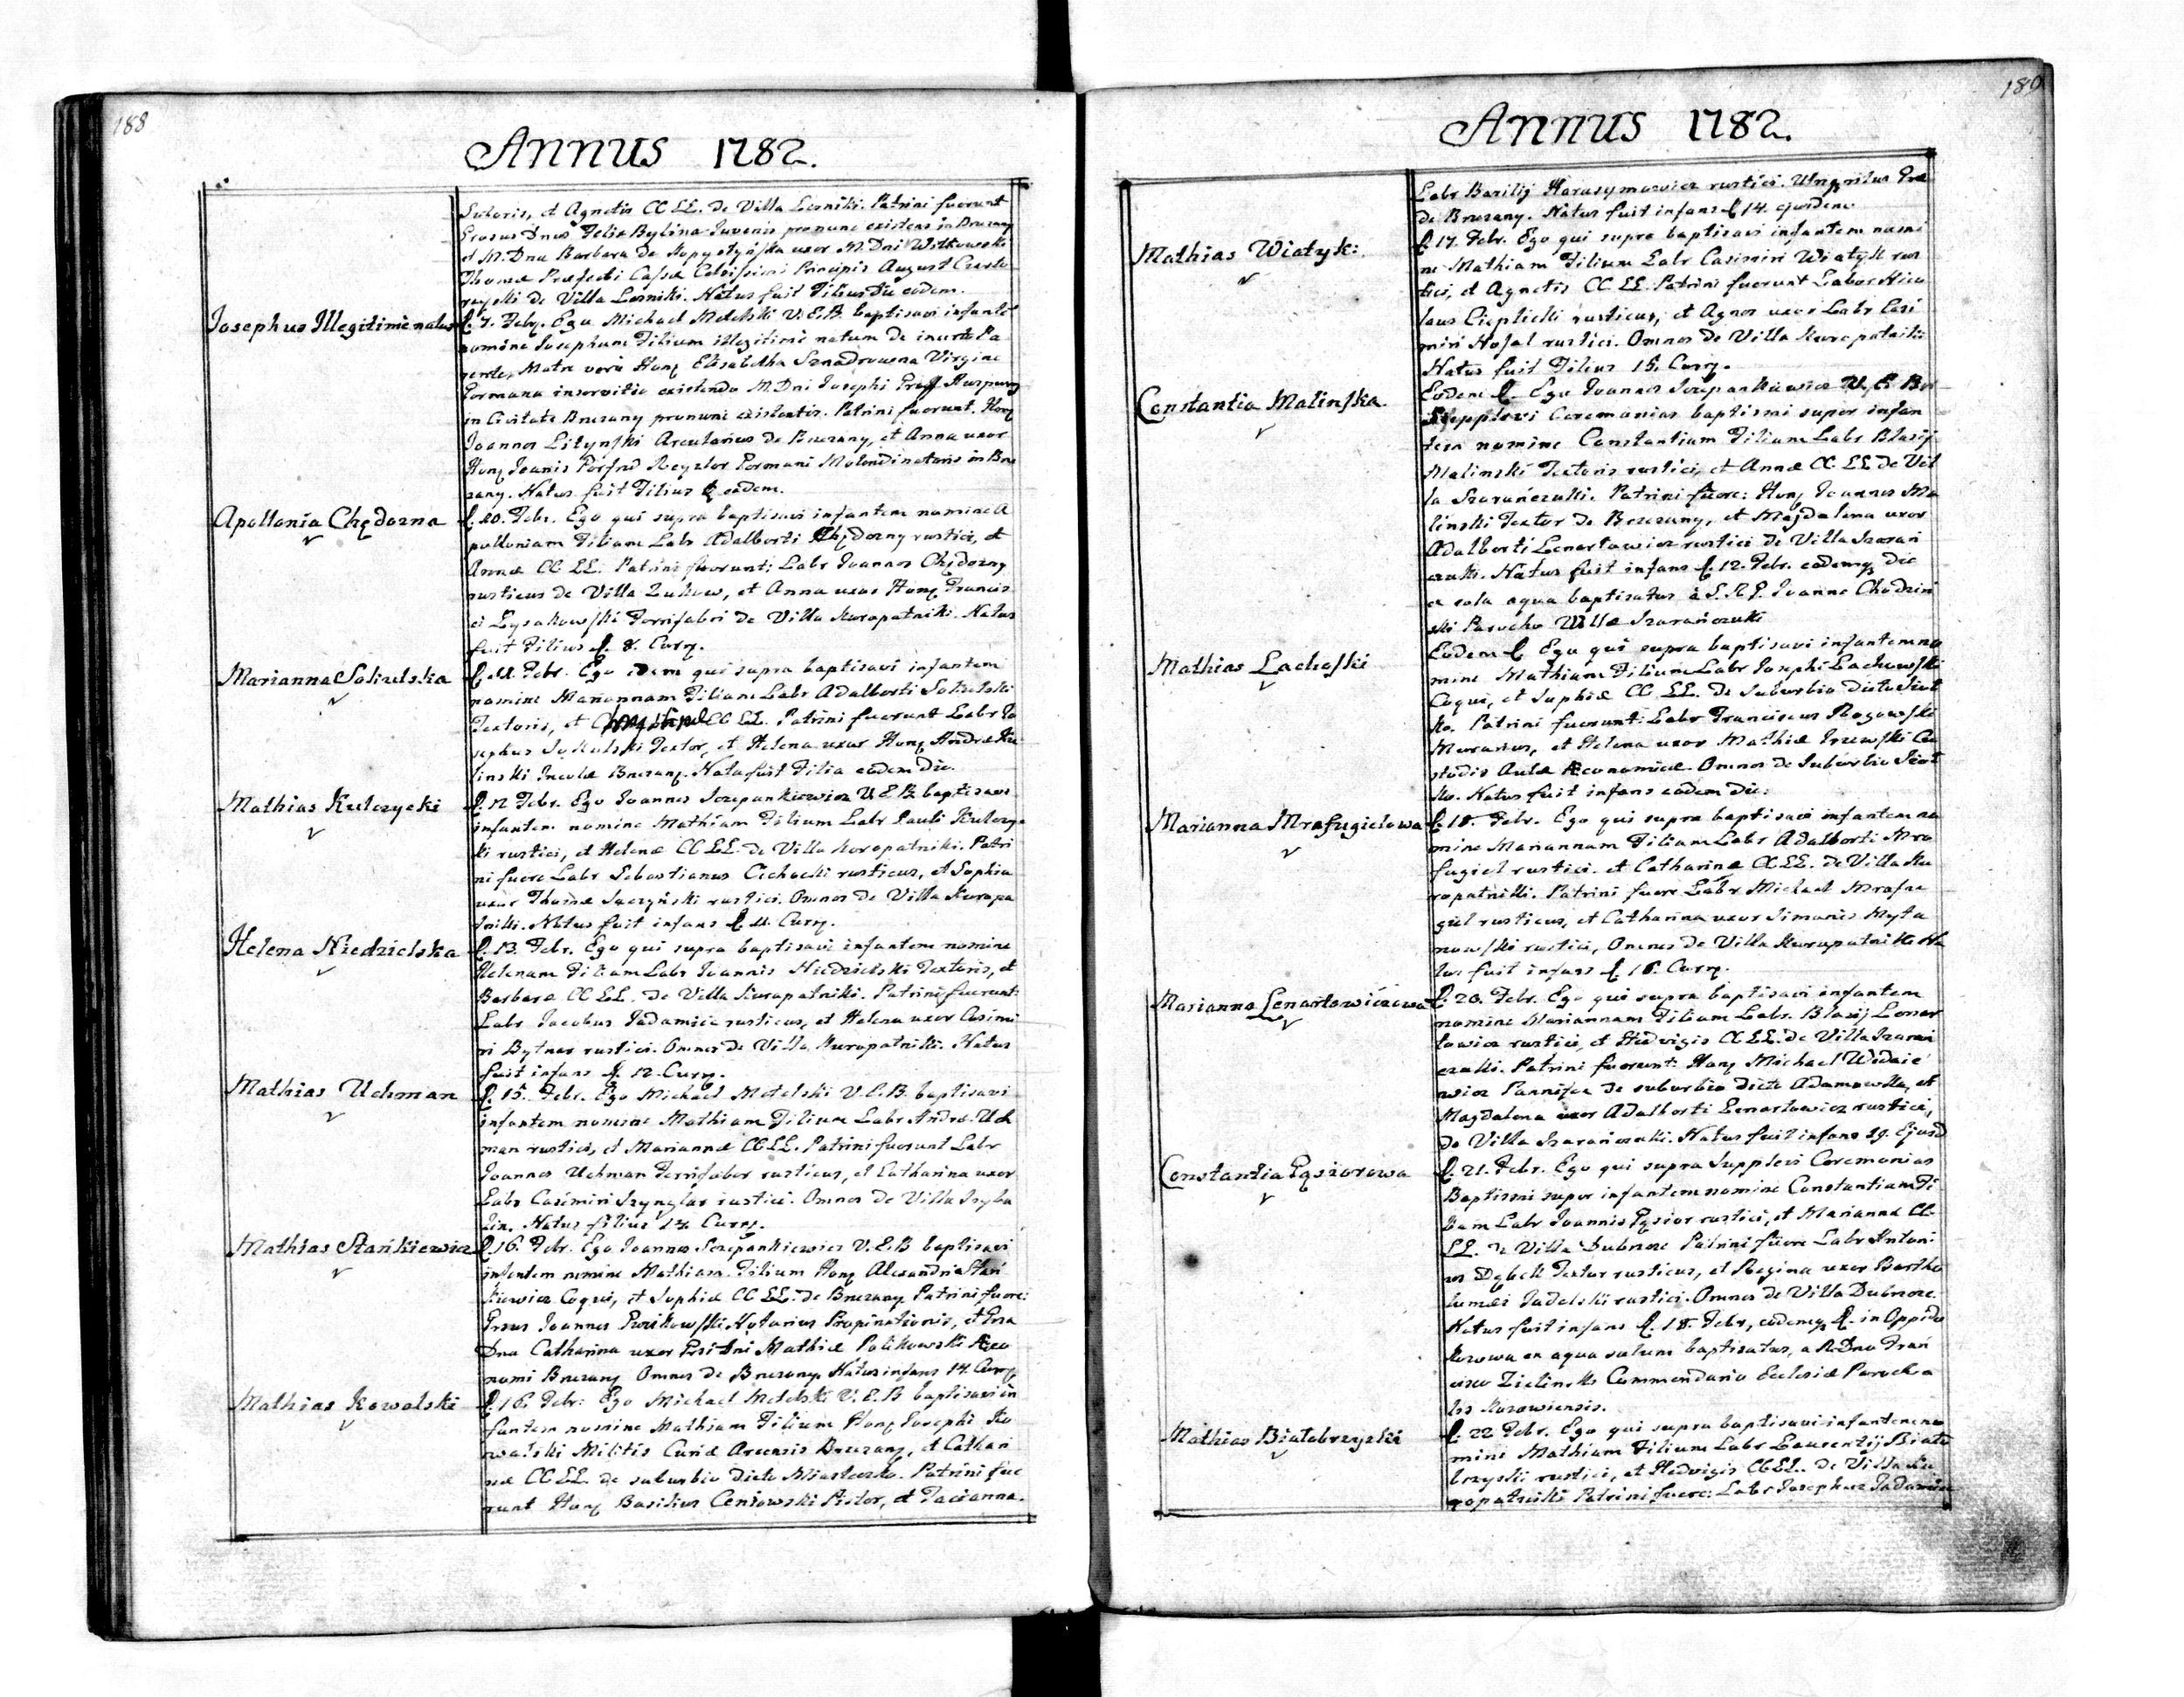 188
Annus 1782.
Sutoris, et Agnetis CC LL. de Villa Lesniki. Patrini fuerunt
Grosus Dnus Felix Bylina Juvenis pronunc existens in Brzezany
et M. Dna Barbara de uxor M. Dni Witkowski
Thomæ Præfecti Cassæ Celsissimi Principis August Czarto
ryski de Villa Lesniki. Natus fuit Filius die eodem.
Josephus Illegitimè natus
d. 7. Febr. Ego Michael Metelski V. E. B. baptisavi infantem
nomine Josephum Filium illegitimè natum de incerto Pa
rente, Matre verò Hon Elisabetha Virgine
Germana in servitio existendo M. Dni Josephi
in Civitate Brzezany pronunc existentis. Patrini fuerunt. Hon
Joannes Lityński Arcularius de Brzezany, et Anna uxor
Hon Joanis Germani Molendinatoris in Brze
zany. Natus fuit Filius eodem.
Apollonia Chędozna
d. 10. Febr. Ego qui supra baptisavi infantem nomine A
polloniam Filiam Labr Adalberti Chędozny rustici, et
Annæ CC LL. Patrini fuerunt: Labr Joannes Chędozny
rusticus de Villa Zukow, et Anna uxor Hon Francis
ci Lysakowski Ferrifabri de Villa Kuropatniki. Natus
fuit Filius d. 8. Curr.
Marianna Sokulska
d. 11. Febr. Ego idem qui supra baptisavi infantem
nomine Mariannam Filiam Labr Adalberti Sokulski
Textoris, et CC LL. Patrini fuerunt Labr Jo
sephus Sokulski Textor, et Helena uxor Hon Andreæ Ku
linski Incolæ Brzezan. Nata fuit Filia eodem die.
Mathias Kulczycki
d. 12 Febr. Ego Joannes Szczepankiewicz V. E. B. baptisavi
infantem nomine Mathiam Filium Labr Pauli Kulczyc
ki rustici, et Helenæ CC LL. de Villa Kuropatniki. Patri
ni fuere Labr Sebastianus Cichocki rusticus, et Sophia
uxor Thomæ rustici. Omnes de Villa Kuropa
tniki. Natus fuit infans d. 11. Curr.
Helena Niedzielska
d. 13. Febr. Ego qui supra baptisavi infantem nomine
Helenam Filiam Labr Joannis Niedzielski Textoris, et
Barbaræ CC LL. de Villa Kuropatniki. Patrini fuerunt
Labr Jacobus Jadamiec rusticus, et Helena uxor Casimi
ri Bytnar rustici. Omnes de Villa Kuropatniki. Natus
fuit infans d. 12. Curr.
Mathias Uchman
d. 15. Febr. Ego Michael Metelski V. E. B. baptisavi
infantem nomine Mathiam Filium Labr Andreæ Uch
man rustici, et Mariannæ CC LL. Patrini fuerunt Labr
Joannes Uchman Ferrifaber rusticus, et Catharina uxor
Labr Casimiri Szynglar rustici. Omnes de Villa Szyba
lin. Natus filius 14 Curr.
Mathias Stańkiewicz
d. 16. Febr. Ego Joannes Szczepankiewicz V. E. B. baptisavi
infantem nomine Mathiam Filium Hon Alexandri Stań
kiewicz Coqui, et Sophiæ CC LL. de Brzezany Patrini fuere:
Grsus Joannes Notarius Propinationis, et Grsa
Dna Catharina uxor Grsi Dni Mathiæ Polikowski Æco
nomi Brzezany Omnes de Brzezany. Natus infans 14. Curr
Mathias Kowalski
d. 16. Febr: Ego Michael Metelski V. E. B. baptisavi in
fantem nomine Mathiam Filium Hon Josephi Ko
walski Militis Curiæ Arcensis Brzezan, et Cathari
næ CC LL. de suburbio dicto Miasteczko. Patrini fue
runt Hon Basilius Ceniowski Pictor, et Tacianna.
189
Annus 1782.
Labr Basilij Harasymowicz rustici. Uterque ritus Græ
de Brzezany. Natus fuit infans d. 14. ejusdem.
Mathias Wiatyk:
d. 17. Febr. Ego qui supra baptisavi infantem nomi
ne Mathiam Filium Labr Casimiri Wiatyk rus
tici, et Agnetis CC LL. Patrini fuerunt Labor Nico
laus Cieplicki rusticus, et Agnes uxor Labr Casi
miri rustici. Omnes de Villa Kuropatniki
Natus fuit Filius 15. Curr.
Constantia Malinska.
Eodem d. Ego Joannes Szczepankiewicz V. E. B
supplevi Ceremonias baptismi super infan
tem nomine Constantiam Filiam Labr Blasij
Malinski Textoris rustici, et Annæ CC LL de Vil
la Szarańczuki. Patrini fuere: Hon Joannes Ma
linski Textor de Brzezany, et Magdalena uxor
Adalberti Lenartowicz rustici de Villa Szarań
czuki. Natus fuit infans d. 12. Febr. eodemq die
ex sola aqua baptisatus à Joanne Chodzin
ski Parocho Villæ Szarańczuki
Mathias Lachoski
Eodem d Ego qui supra baptisavi infantem no
mine Mathiam Filium Labr Josephi Lachowski
Coqui, et Sophiæ CC LL. de Suburbio dicto Siół
ko. Patrini fuerunt: Labr Franciscus Rogowski
Murarius, et Helena uxor Mathiæ Cu
stodis Aulæ Æconomicæ. Omnes de Suburbio Sioł
ko. Natus fuit infans eodem die.
Marianna Mrofugielowa
d. 18. Febr. Ego qui supra baptisavi infantem no
mine Mariannam Filiam Labr Adalberti Mro
fugiel rustici. et Catharinæ CC LL. de Villa Ku
ropatniki. Patrini fuere Labr Michael Mrofu
giel rusticus, et Catharina uxor Simonis Myta
nowski rustici, Omnes de Villa Kuropatniki Na
tus fuit infans d. 16. Curr.
Marianna Lenartowiczowa
d. 20. Febr. Ego qui supra baptisavi infantem
nomine Mariannam Filiam Labr. Blasij Lenar
towicz rustici, et Hedvigis CC LL. de Villa Szarań
czuki. Patrini fuerunt: Hon Michael
Pannifex de suburbio dicto Adamowka, et
Magdalena uxor Adalberti Lenartowicz rustici,
de Villa Szarańczuki. Natus fuit infans 19. Ejusd
Constantia Gąsiorowa
d. 21. Febr. Ego qui supra Supplevi Ceremonias
Baptismi super infantem nomine Constantiam Fi
liam Labr Joannis Gąsior rustici, et Mariannæ CC
LL. de Villa Dubszcze Patrini fuere Labr Antoni
us Textor rusticus, et Regina uxor Bartho
lomæi rustici. Omnes de Villa Dubszcze.
Natus fuit infans d. 18. Febr, eodemq d. in Oppido
Kozowa ex aqua solum baptisatus, a R. Dno Fran
cisco Zielinski Commendario Ecclesiæ Parochia
lis Kozowiensis.
Mathias Białobrzyski
d. 22 Febr. Ego qui supra baptisavi infantem no
mine Mathiam Filium Labr Laurentij Biało
brzyski rustici, et Hedvigis CC LL. de Villa Ku
ropatniki Patrini fuere: Labr Josephus Jadamiec